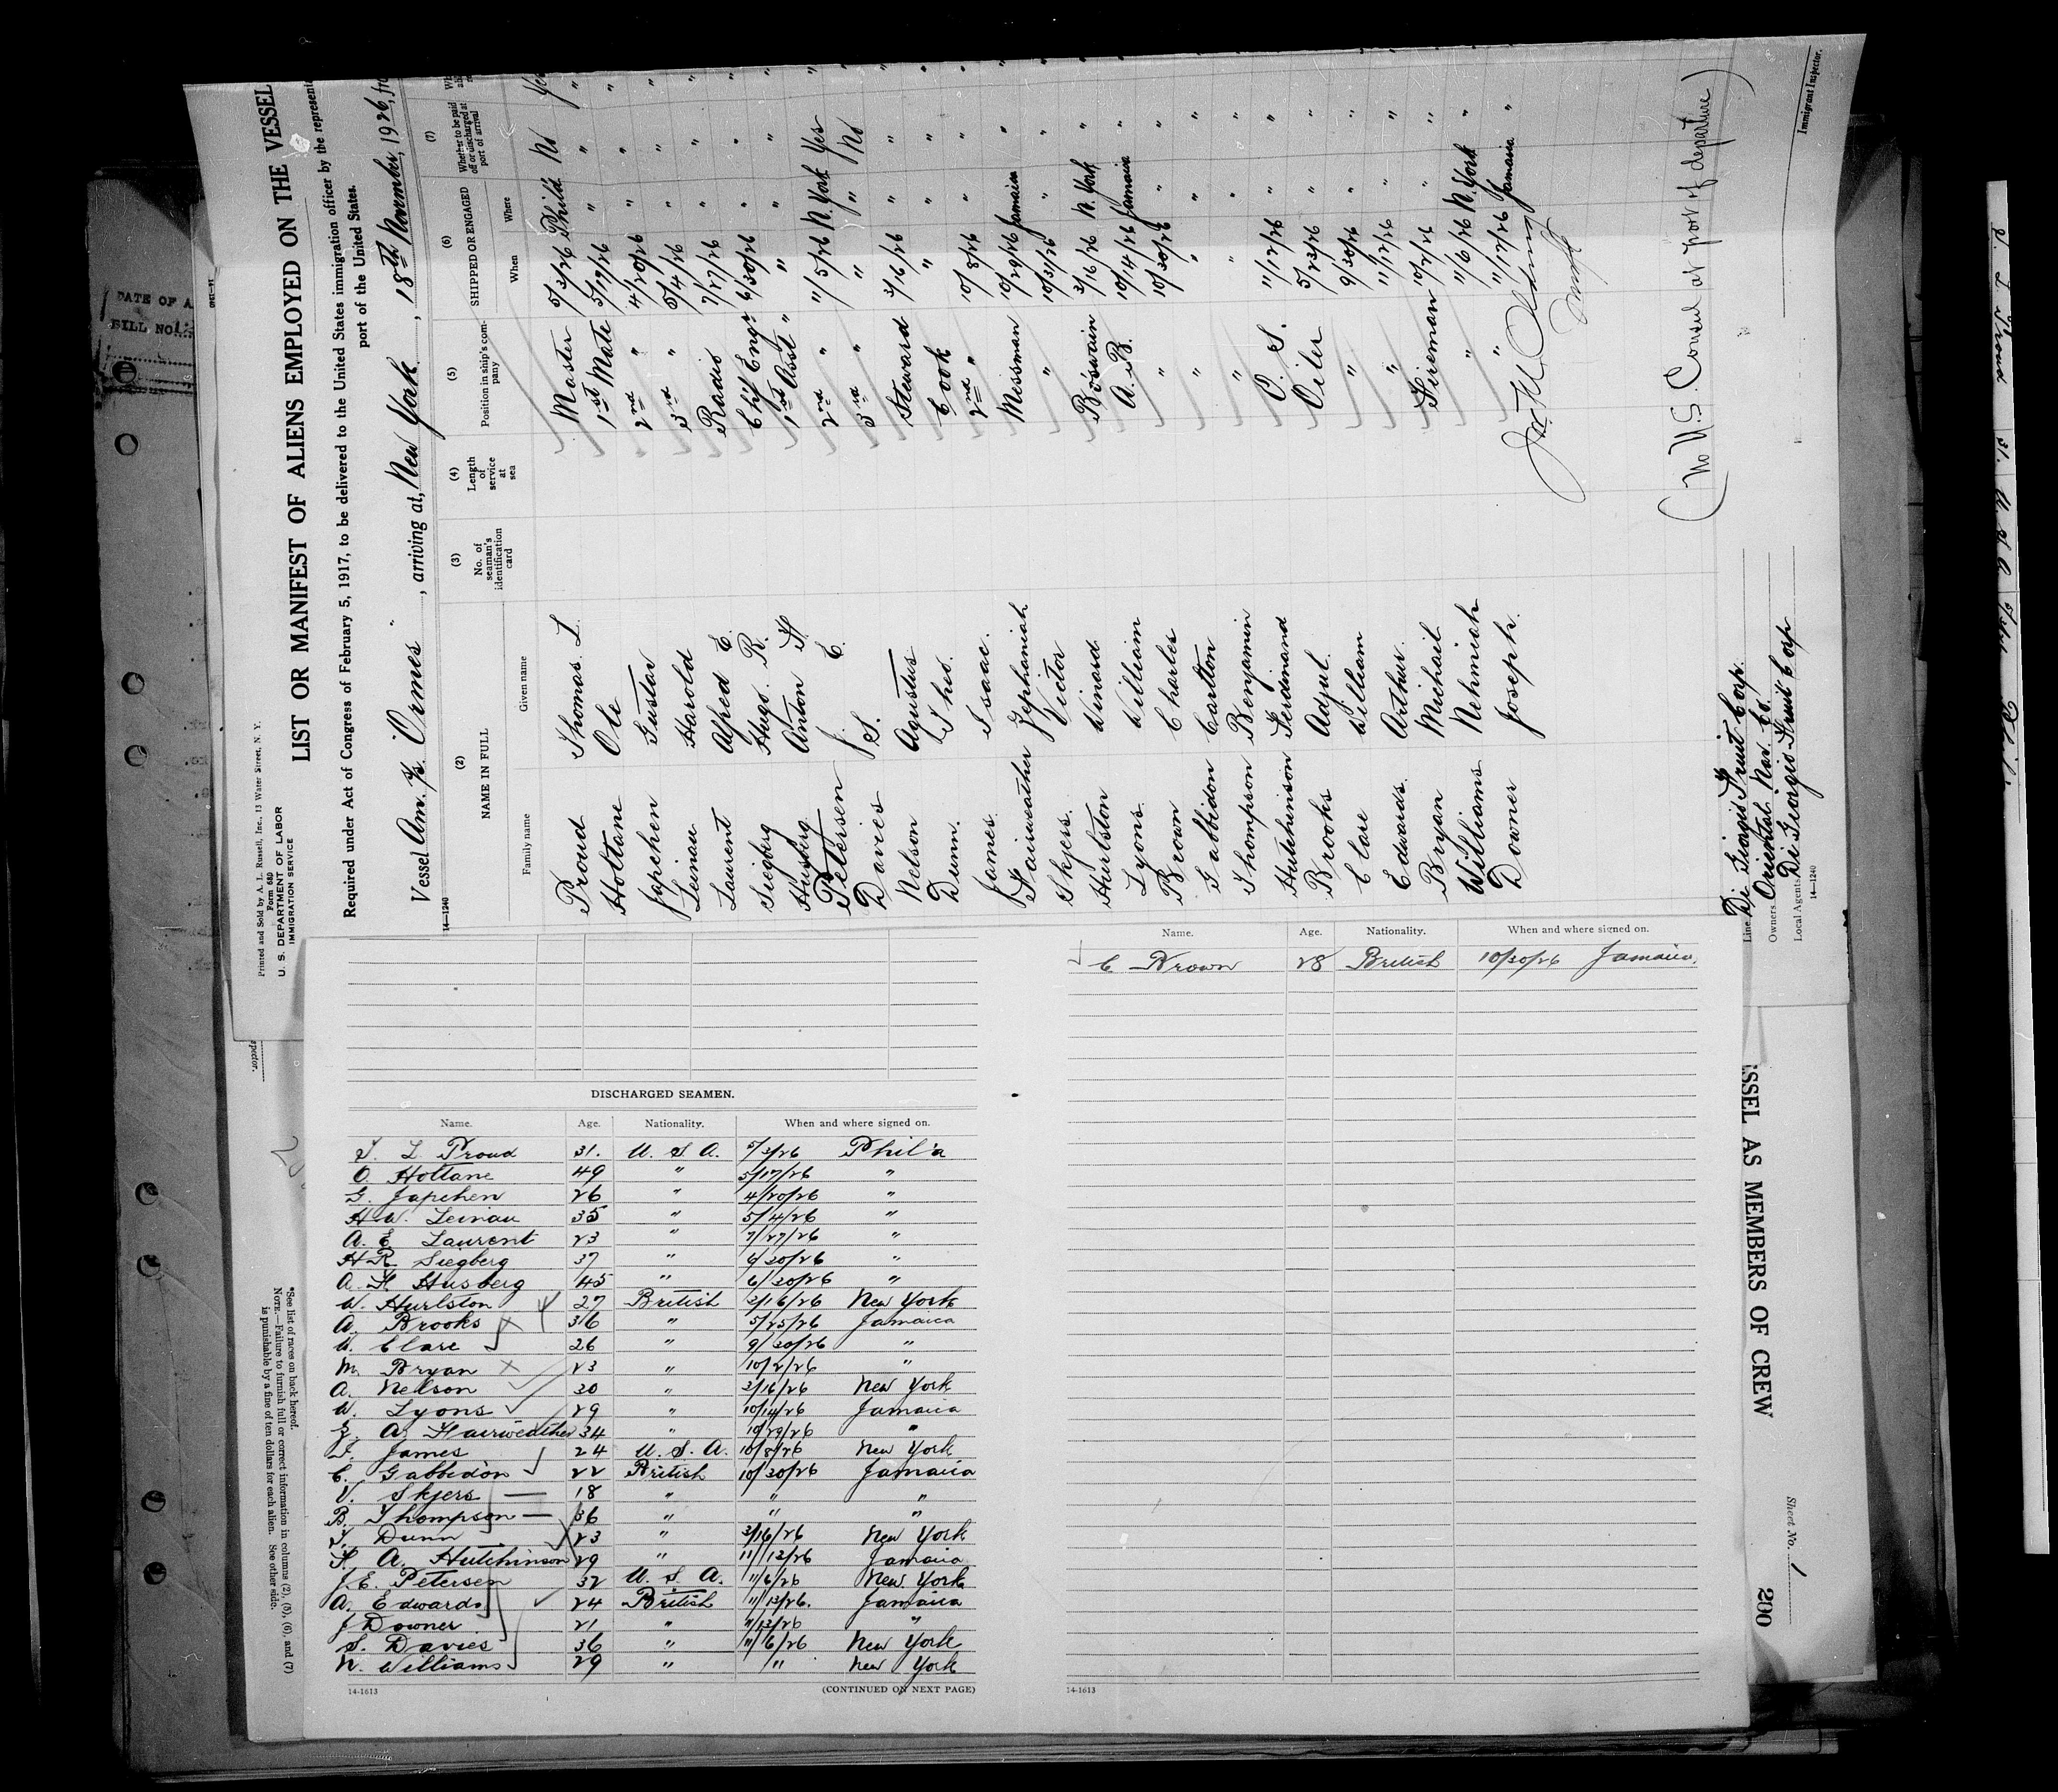 Printed and Sold by A. L. Russell, Inc., 13 Water Street, N. Y.
Form 680
U. S. DEPARTMENT OF LABOR
IMMIGRATION SERVICE
LIST OR MANIFEST OF ALIENS EMPLOYED ON THE VESSEL
Required under Act of Congress of February 5, 1917, to be delivered to the United States immigration officer by the represent
port of the United States.
Vessel Am. "Ormes", arriving at, New York, 18th November, 1926, fr
14-1240
(2) (3) (4) (5) (6) (7)
NAME IN FULL No. of seaman's identification card Length of service at sea Position in ship's company SHIPPED OR ENGAGED Whether to be paid off or discharged at port of arrival
Family name Given name When Where
Proud Thomas L. Master 5/3/26 Phil'd No Yes
Hottane Ole 1st Mate 5/17/26 " " "
Japchen Gustav 2nd " 4/20/26 " " "
Leinau Harold 3rd " 5/4/26 " " "
Laurent Alfred E. Radio 7/27/26 " " "
Siegberg Hugo R. Chf Engr 6/30/26 " " "
Husberg Anton H 1st Asst " " " " "
Petersen J. E. 2nd " 11/5/26 N. York Yes "
Davies S. 3rd " " " No "
Nelson Agustus Steward 3/16/26 " " "
Dunn. Theo. Cook " " " "
James Isaac. 2nd " 10/8/26 " " "
Fairweather Zephaniah Messman 10/29/26 Jamaica " "
Skjers. Victor " 10/31/26 " " "
Hurlston Winard Boswain 3/16/26 N. York " "
Lyons William A. B. 10/14/26 Jamaica " "
Brown Charles " 10/30/26 " " "
Gabbidon Carlton " " " " "
Thompson Benjamin " " " " "
Hutchinson Ferdinand O. S. 11/12/26 " " "
Brooks Adjul. Oiler 5/23/26 " " "
Clare William " 9/30/26 " " "
Edwards. Arthur. " 11/12/26 " " "
Bryan Michail Fireman 10/2/26 " " "
Williams Nehmiah " 11/6/26 N. York " "
Downer Joseph. " 11/12/26 Jamaica " "
(No U.S. Consul at port of departure)
Immigrant Inspector.
Line Di Giorgio Fruit Corp.
Owners Oriental Nav. Co.
Local Agents Di Giorgio Fruit Corp
14-1240
DATE OF A
BILL NO.
DISCHARGED SEAMEN.
Name. Age. Nationality. When and where signed on.
T. L Proud 31. U. S. A. 5/3/26 Phil'a
O. Hottane 49 " 5/17/26 "
G. Japchen 26 " 4/20/26 "
H. W. Leinau 35 " 5/4/26 "
A. E Laurent 23 " 7/27/26 "
H R Siegberg 37 " 6/30/26 "
A. H. Husberg 45 " 6/30/26 "
W. Hurlston 27 British 3/16/26 New York
A. Brooks 36 " 5/25/26 Jamaica
W. Clare 26 " 9/30/26 "
M. Bryan 23 " 10/2/26 "
A. Nelson 30 " 3/16/26 New York
W. Lyons 29 " 10/14/26 Jamaica
Z. A. Fairweather 34 " 10/29/26 "
I. James 24 U. S. A. 10/8/26 New York
C. Gabbidon 22 British 10/30/26 Jamaica
V. Skjers 18 " " "
B. Thompson 36 " " "
T. Dunn 23 " 3/16/26 New York
F. A. Hutchinson 29 " 11/12/26 Jamaica
J. E. Petersen 32 U. S. A. 11/6/26 New York
A. Edwards 24 British 11/12/26. Jamaica
J Downer 21 " 11/12/26 "
S. Davies 36 " 11/6/26 New York
N. Williams 29 " " New York
14-1613
(CONTINUED ON NEXT PAGE)
Name. Age. Nationality. When and where signed on.
C Brown 28 British 10/30/26 Jamaica.
14-1613
*See list of races on back hereof.
NOTE.—Failure to furnish full or correct information in columns (2), (5), (6), and (7)
is punishable by a fine of ten dollars for each alien. See other side.
SSEL AS MEMBERS OF CREW
Sheet No. 1
200